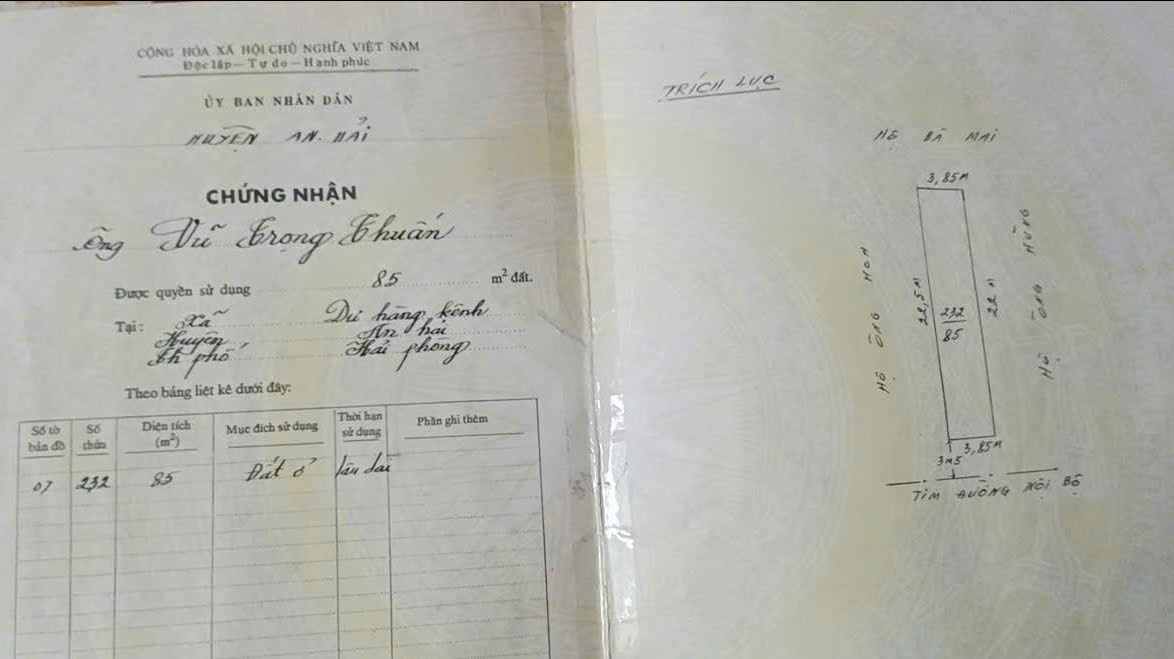 CỘNG HÒA XÃ HỘI CHỦ NGHĨA VIỆT NAM
Độc lập — Tự do — Hạnh phúc
ỦY BAN NHÂN DÂN
HUYỆN AN HẢI
CHỨNG NHẬN
Ông Vũ Trọng Thuấn
Được quyền sử dụng 85 m² đất.
Tại: Xã Dư hàng kênh
Huyện An hải
Th phố Hải phòng
Theo bảng liệt kê dưới đây:
Số tờ bản đồ Số thửa Diện tích (m²) Mục đích sử dụng Thời hạn sử dụng Phần ghi thêm
07 232 85 Đất ở lâu dài
TRÍCH LỤC
HỘ BÀ MAI
3,85M
HỘ ÔNG HOA
22,5M
232
85
22 M
HỘ ÔNG HÙNG
3,85M
3M5
TIM ĐƯỜNG NỘI BỘ